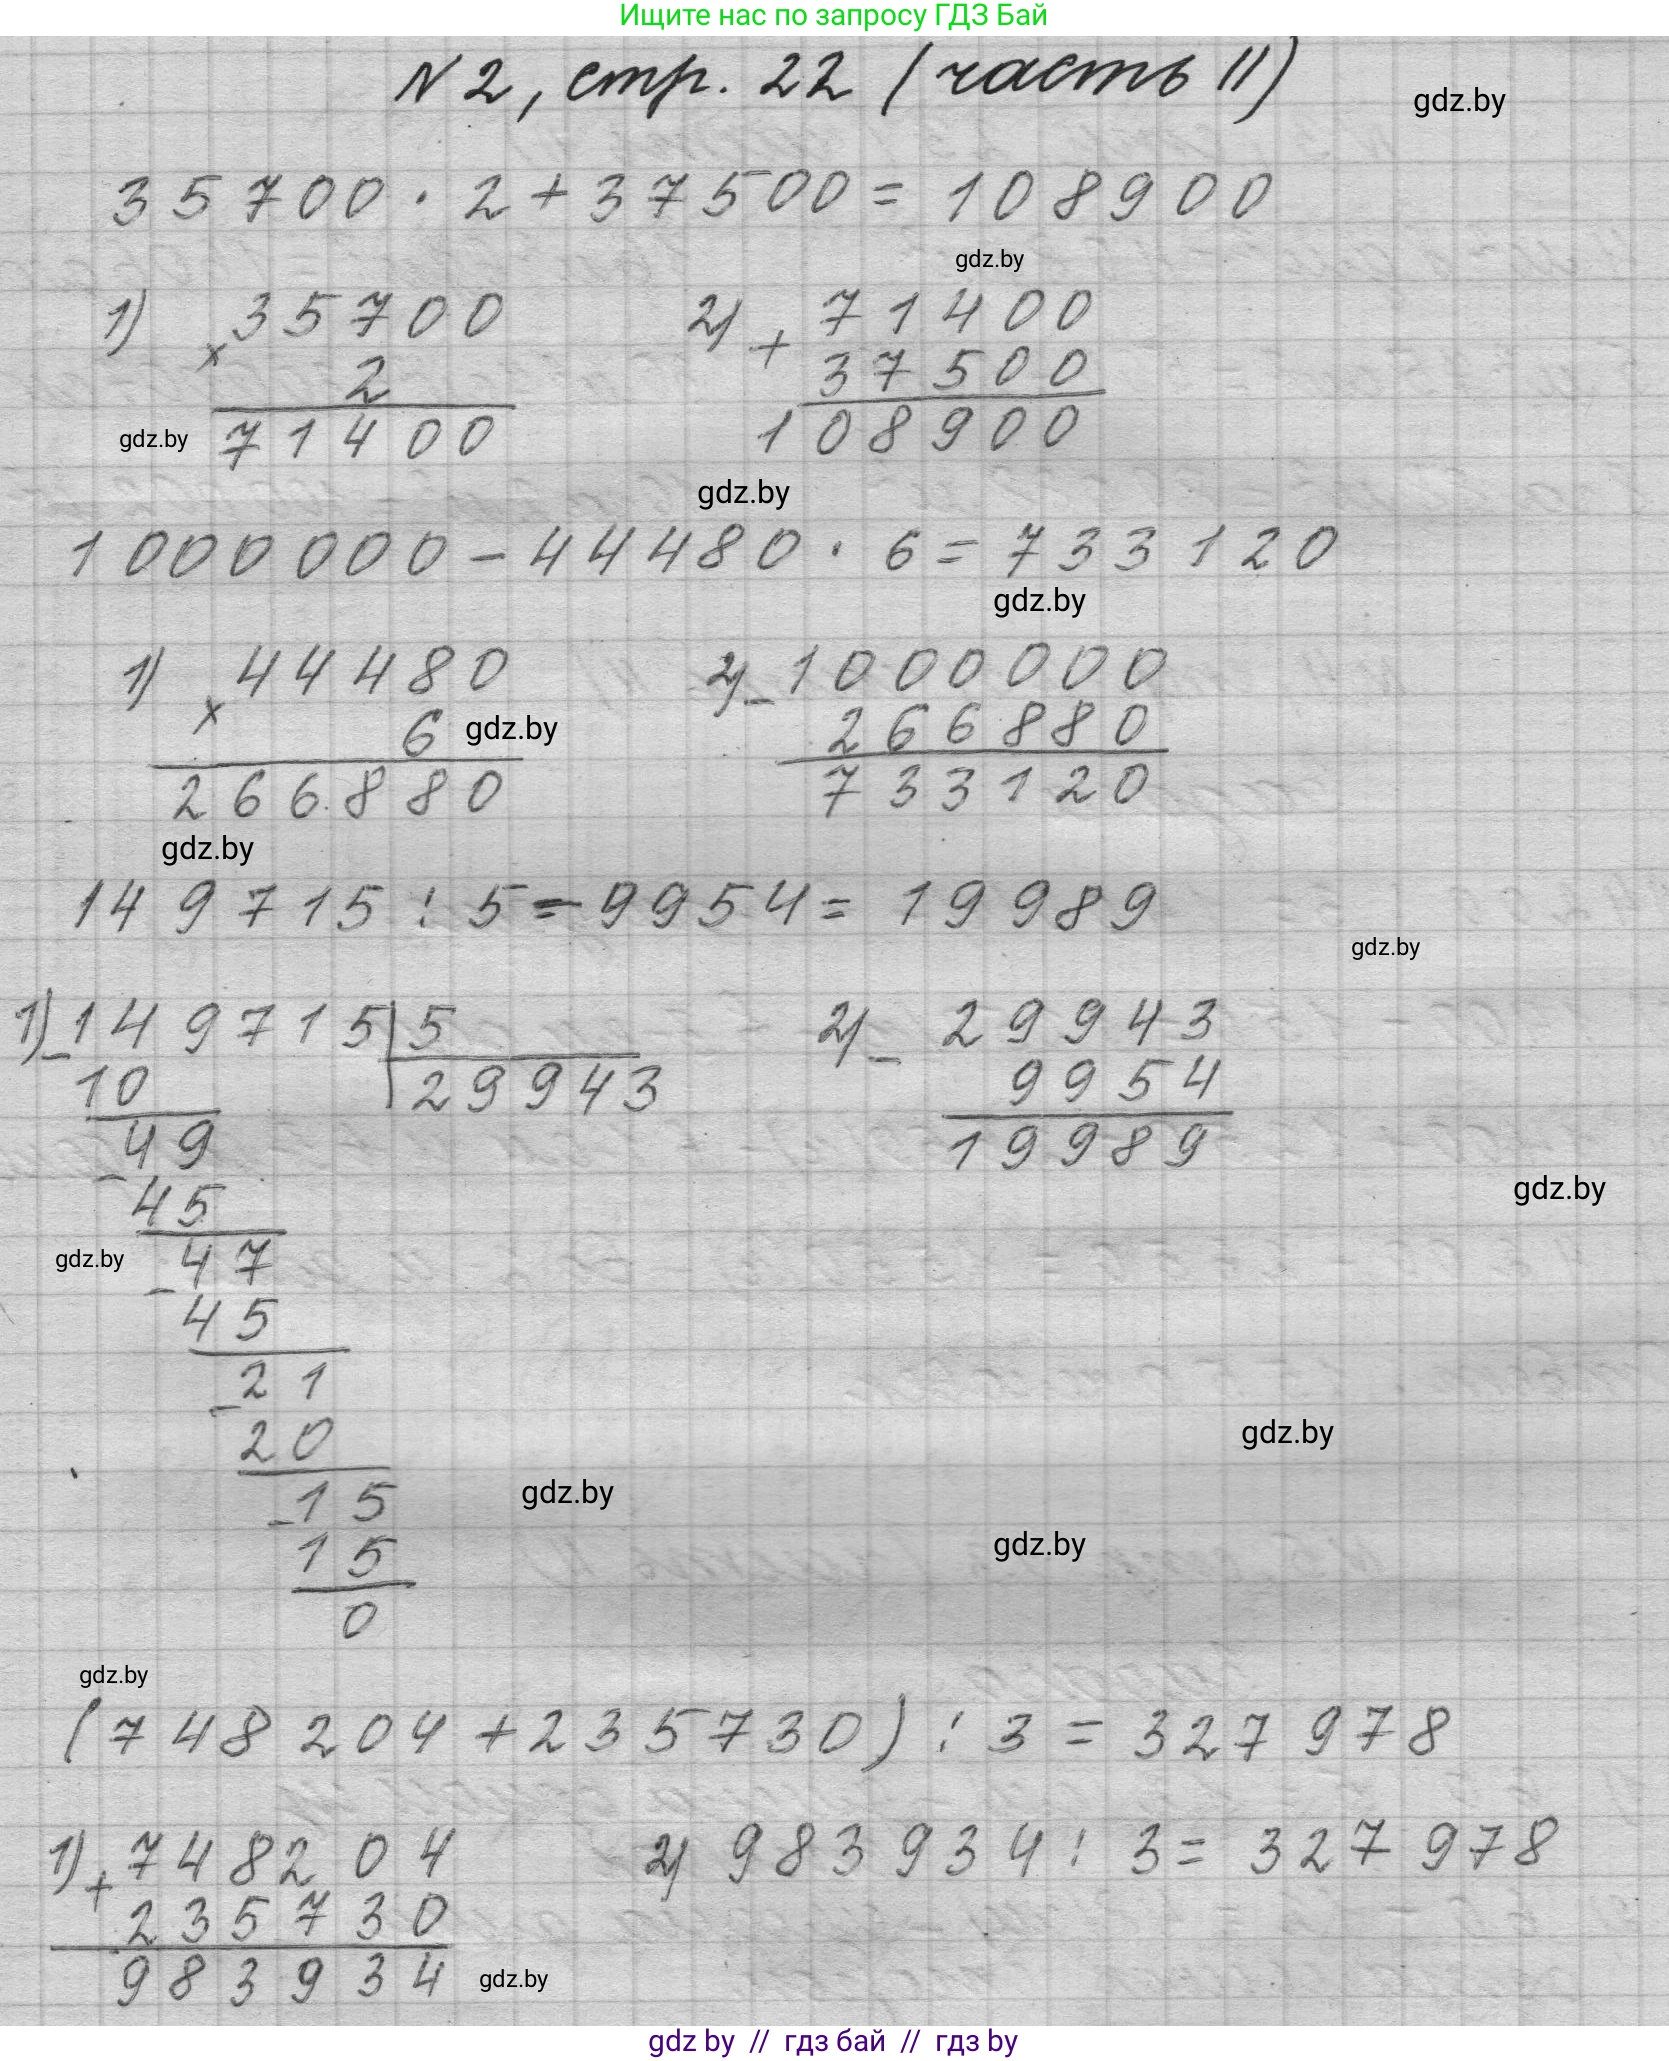 Ищите нас по запросу ГДЗ Бай
N 2, стр. 22 (часть II)
gdz.by
35700 · 2 + 37500 = 108900
gdz.by
1) × 35700
2
71400
2) + 71400
37500
108900
gdz.by
gdz.by
1000000 - 44480 · 6 = 733120
gdz.by
1) × 44480
6
266880
gdz.by
2) - 1000000
266880
733120
gdz.by
149715 : 5 - 9954 = 19989
gdz.by
1) - 149715 | 5
10 29943
49
- 45
47
- 45
21
- 20
15
- 15
0
2) - 29943
9954
19989
gdz.by
gdz.by
gdz.by
gdz.by
gdz.by
gdz.by
(748204 + 235730) : 3 = 327978
1) + 748204
235730
983934
2) 983934 : 3 = 327978
gdz.by
gdz by // гдз бай // гдз by